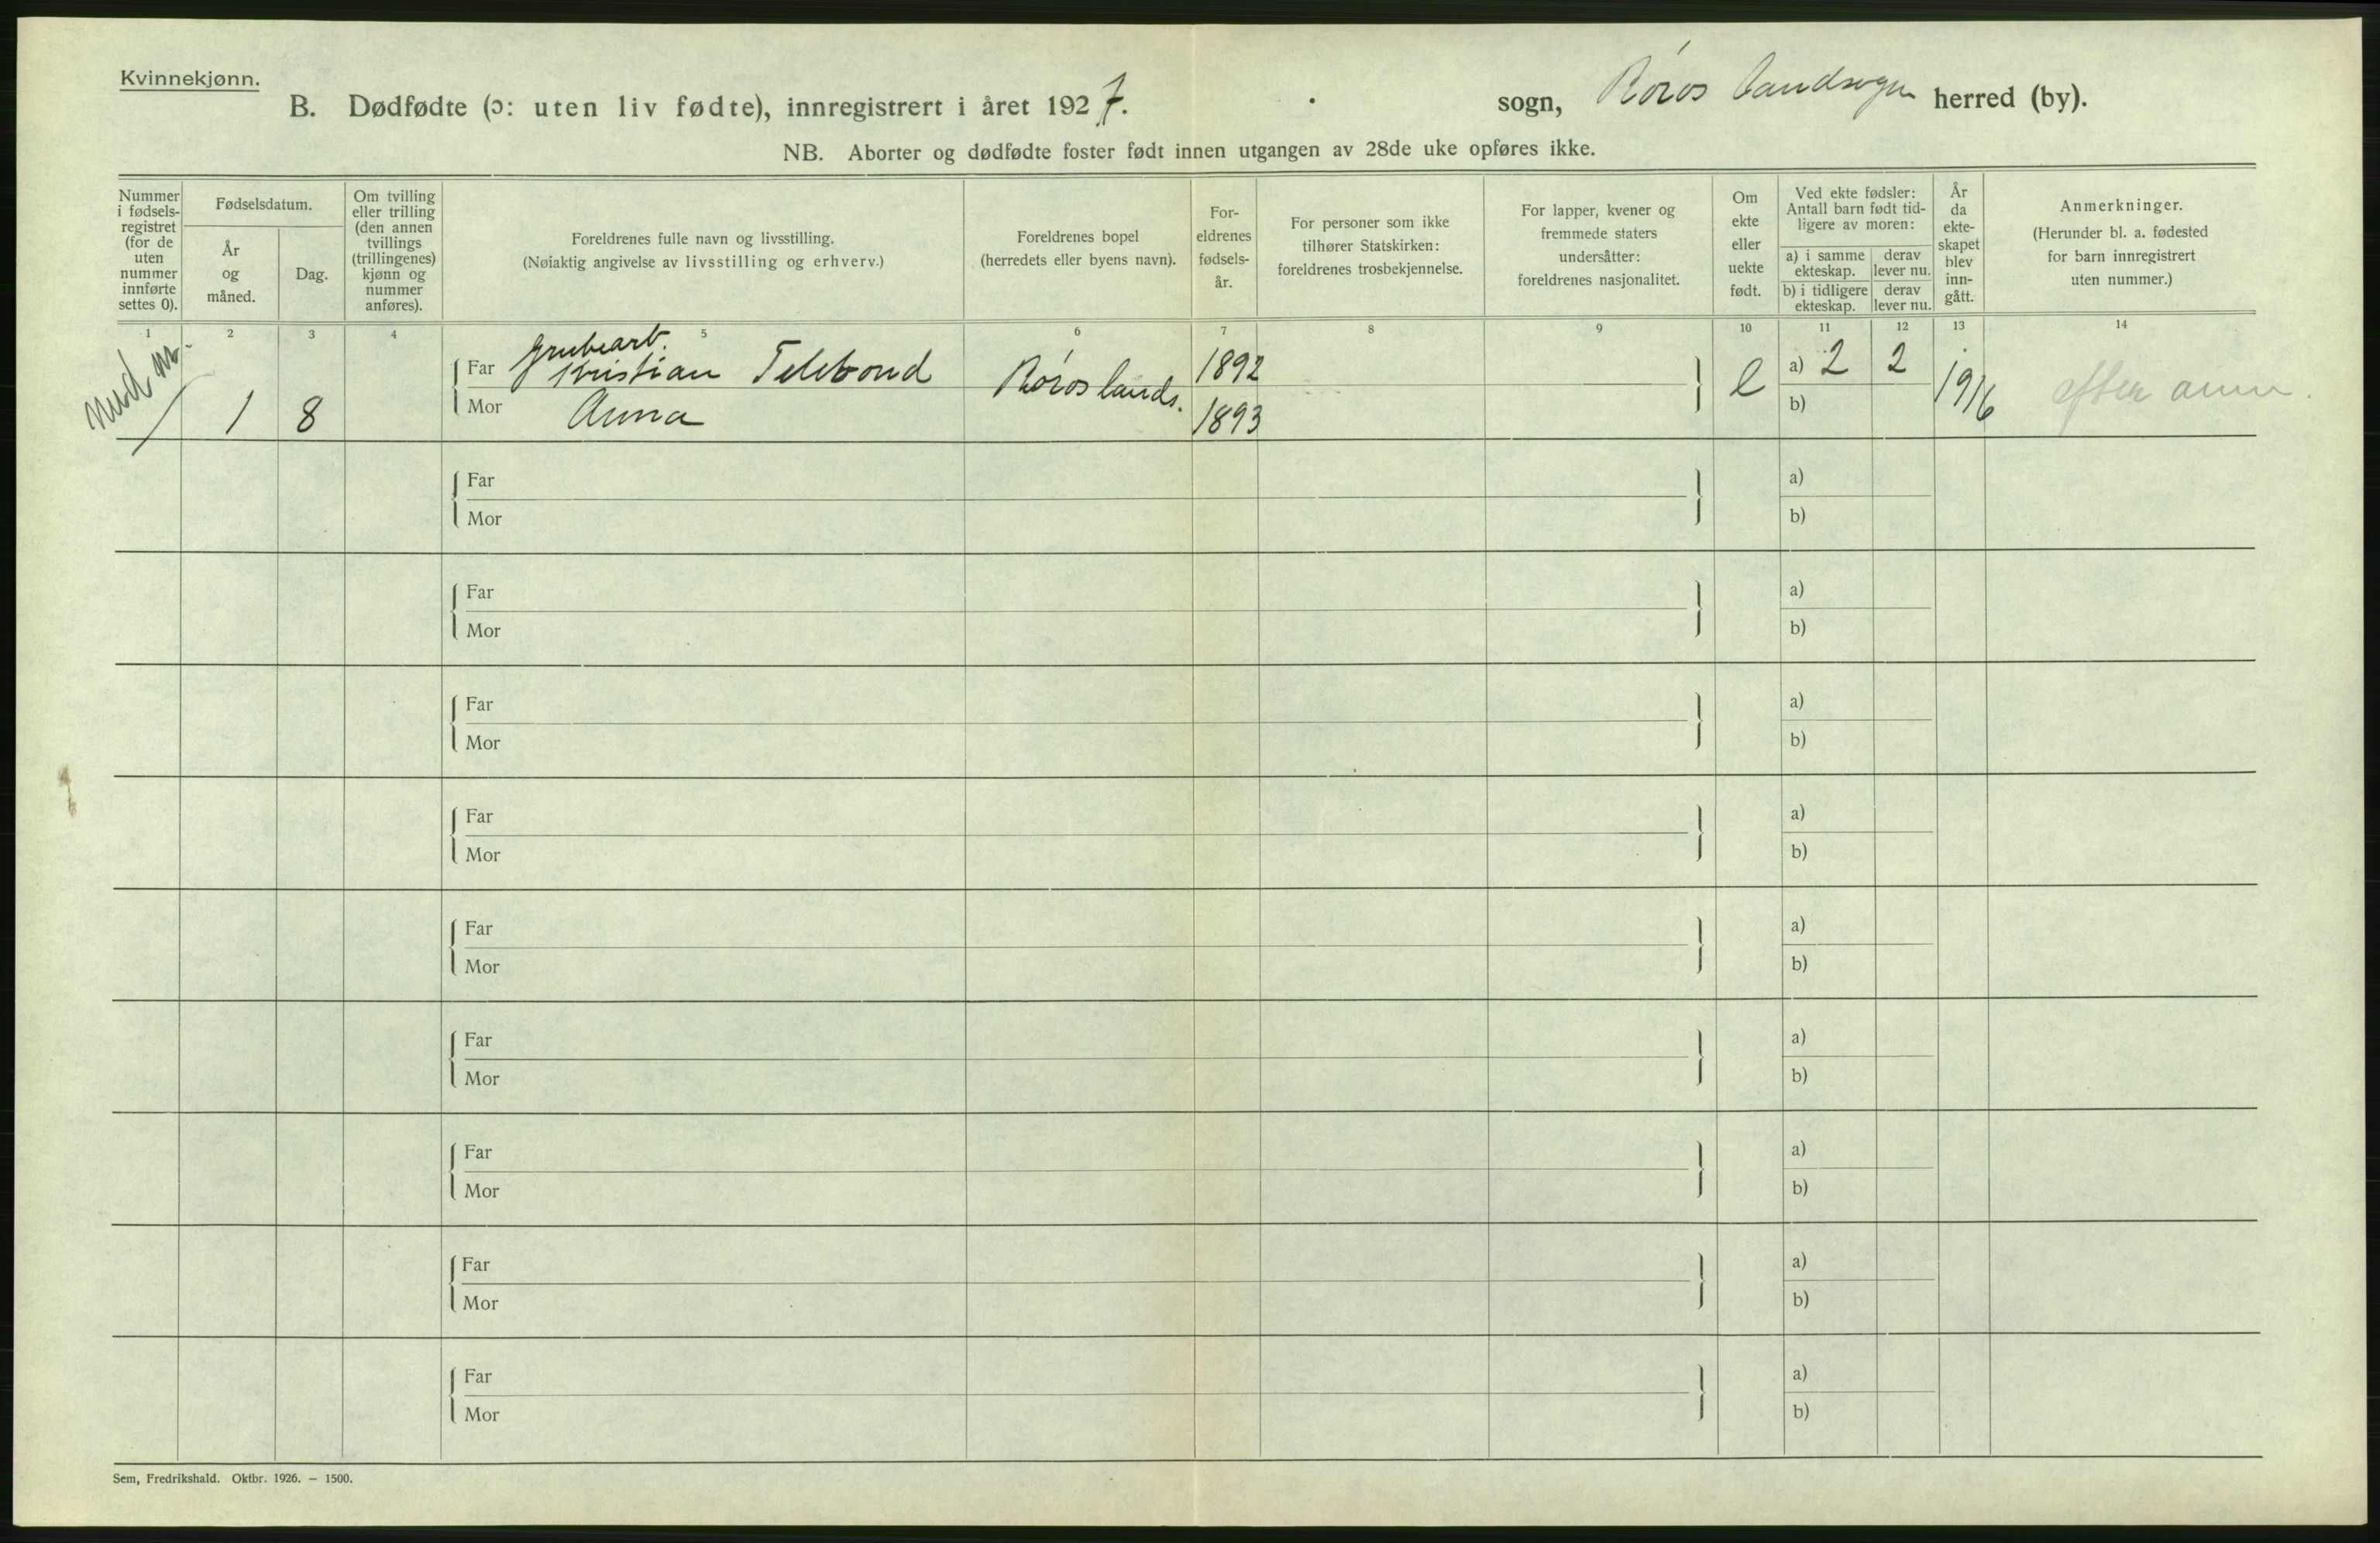 Kvinnekjønn.
B. Dødfødte (ɔ: uten liv fødte), innregistrert i året 1927. sogn, Røros landsogn herred (by).
NB. Aborter og dødfødte foster født innen utgangen av 28de uke opføres ikke.
Nummer i fødsels-registret (for de uten nummer innførte settes 0).
Fødselsdatum.
År og måned.
Dag.
Om tvilling eller trilling (den annen tvillings (trillingenes) kjønn og nummer anføres).
Foreldrenes fulle navn og livsstilling.
(Nøiaktig angivelse av livsstilling og erhverv.)
Foreldrenes bopel
(herredets eller byens navn).
For-eldrenes fødsels-år.
For personer som ikke tilhører Statskirken: foreldrenes trosbekjennelse.
For lapper, kvener og fremmede staters undersåtter: foreldrenes nasjonalitet.
Om ekte eller uekte født.
Ved ekte fødsler: Antall barn født tid-ligere av moren:
a) i samme ekteskap.
derav lever nu.
b) i tidligere ekteskap.
derav lever nu.
År da ekte-skapet blev inn-gått.
Anmerkninger.
(Herunder bl. a. fødested for barn innregistrert uten nummer.)
1 2 3 4 5 6 7 8 9 10 11 12 13 14
Grubearb.
Far Kristian Telebond 1892 a) 2 2
1 8 Røros lands. e 1916 efter anm.
Mor Anna 1893 b)
Far a)
Mor b)
Far a)
Mor b)
Far a)
Mor b)
Far a)
Mor b)
Far a)
Mor b)
Far a)
Mor b)
Far a)
Mor b)
Far a)
Mor b)
Far a)
Mor b)
Sem, Fredrikshald. Oktbr. 1926. — 1500.